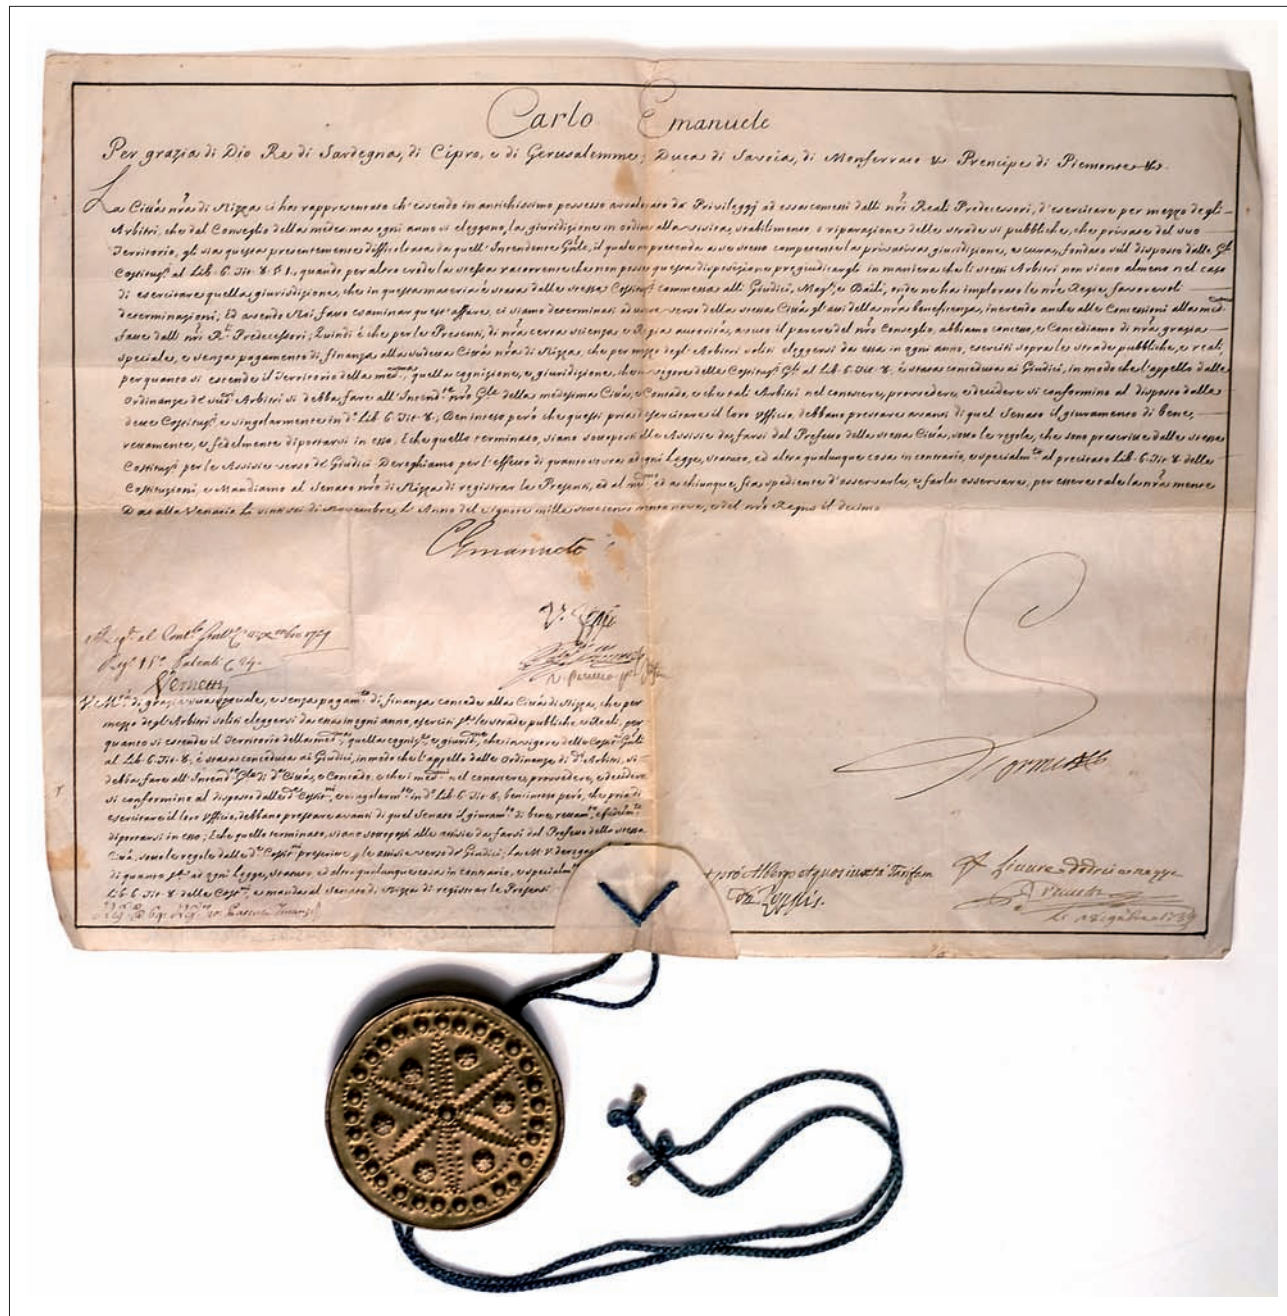 Carlo Emanuele
Per grazia di Dio Re di Sardegna, di Cipro, e di Gerusalemme; Duca di Savoia, di Monferrato &. Prencipe di Piemonte &.
La Città nr̃a di Nizza ci ha rappresentato ch'essendo in antichissimo possesso da' Privileggj ad essa dalli nr̃i Reali Predecessori, d'esercitare per mezzo degli
Arbitri, che dal Conseglio della medema ogni anno si eleggono, la giuridizione in ordine alla visita, stabilimento, e riparazione delle strade sì pubbliche, che private del suo
Territorio, gli sia questa presentemente difficoltata da quell'Intendente Gñle, il quale pretenda a se stesso competere la privativa giuridizione, e cura, fondato sul disposto dalle Gli
Costituz.ni al Lib. 6. Tit. 8. § 1., quando per altro crede la stessa racorrente che non possa questa disposizione pregiudicargli in maniera che li stessi Arbitri non siano almeno nel caso
di esercitare quella giurisdizione, che in questa materia è stata dalle stesse Costituz.ni commessa alli Giudici, e Baili, onde ne ha implorato le nr̃e Regie, favorevoli
determinazioni; Ed avendo Noi fatto esaminar quest'affare, ci siamo determinati ad verso della stessa Città gl'atti della nr̃a beneficenza, inerendo anche alle Concessioni alla med.ma
fatte dalli nr̃i R.li Predecessori; Quindi è che per le Presenti, di nr̃a certa scienza e Regia autorità, avuto il parere del nr̃o Conseglio, abbiamo concesso, e Concediamo di nr̃a grazia
speciale, e senza pagamento di finanza alla sudetta Città nr̃a di Nizza, che per mezzo degl'Arbitri soliti eleggersi da essa in ogni anno, eserciti sopra le strade pubbliche, e reali,
per quanto si estende il Territorio della med.ma, quella cognizione, e giuridizione, che in vigore delle Costituz.ni Gli al Lib. 6. Tit. 8., è stata conceduta ai Giudici, in modo che l'appello dalle
Ordinanze de' sud.i Arbitri si debba fare all'Intend.te nr̃o Gñle della medesima Città, e Contado, e che tali Arbitri nel conoscere, provvedere, e decidere si conformino al disposto dalle
dette Costituz.ni, e singolarmente in d.o Lib. 6. Tit. 8.; Beninteso però che questi pria d'esercitare il loro Ufficio, debbano prestare avanti di quel Senato il giuramento di bene,
rettamente, e fedelmente diportarsi in esso; E che quello terminato, siano sottoposti alle Assisie da farsi dal Prefetto della stessa Città, sotto le regole, che sono prescritte dalle stesse
Costituz.ni per le Assisie verso de' Giudici Deroghiamo per l'effetto di quanto sovra ad ogni Legge, statuto, ed altra qualunque cosa in contrario, e specialm.te al precitato Lib. 6. Tit. 8. delle
Costituzioni, e Mandiamo al Senato nr̃o di Nizza di registrar le Presenti, ed al med.mo ed a chiunque, fia spediente d'osservarle, e farle osservare, per essere tale la nr̃a mente
Dat. alla Venaria li vintisei di Novembre, L'Anno del Signore mille settecento trenta nove, e del nr̃o Regno il decimo
CEmanuele
Vernetti
V. M. di grazia sua speciale, e senza pagam.to di finanza concede alla Città di Nizza, che per
mezzo degl'Arbitri soliti eleggersi da essa in ogni anno, eserciti le strade publiche, e Reali, per
quanto si estende il Territorio della med.ma, quella cogniz.e, e giurid.ne, che in vigore delle Costit.ni Gñli
al Lib. 6. Tit. 8., è stata conceduta ai Giudici, in modo che l'appello dalle Ordinanze di d.i Arbitri, si
debba fare all'Intend.te Gñle di d.a Città, e Contado, e che i med.mi nel conoscere, provvedere, e decidere
si conformino al disposto dalle d.e Costit.ni, e singolarm.te in d.o Lib. 6. Tit. 8., beninteso però, che pria di
esercitare il loro Ufficio, debbano prestare avanti di quel Senato il giuram.to di bene, rettam.te, e fedelm.te
diportarsi in esso; E che quello terminato, siano sottoposti alle assisie da farsi dal Prefetto della stessa
Città, sotto le regole dalle d.e Costit.ni prescritte le assisie verso de' Giudici; La M. V. deroga
di quanto ad ogni Legge, statuto, ed altra qualunque cosa in contrario, e specialm.te
Lib. 6. Tit. 8. delle Cost.ni, e manda al Senato di Nizza di registrar le Presenti